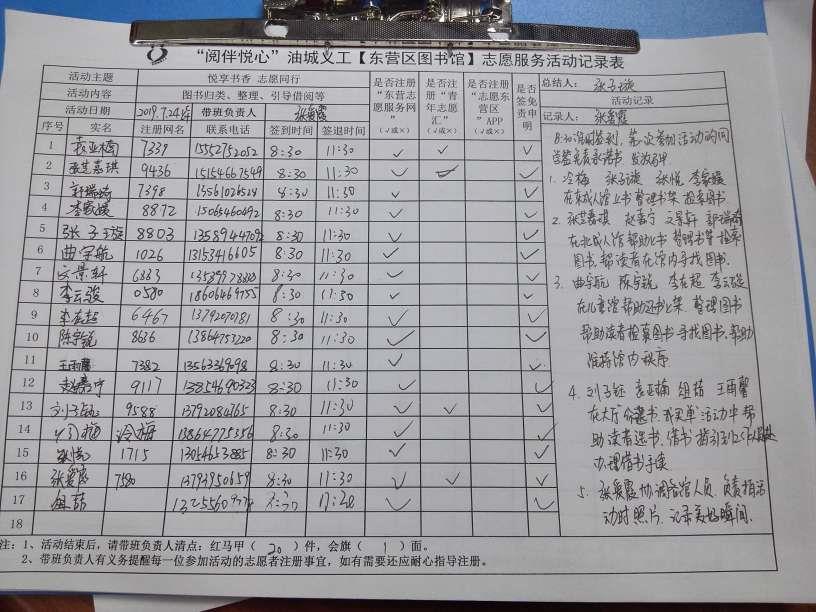 “阅伴悦心”油城义工【东营区图书馆】志愿服务活动记录表
活动主题 悦享书香 志愿同行
活动内容 图书归类、整理、引导借阅等
活动日期 2019.7.24 带班负责人 张爱霞
序号 实名 注册网名 联系电话 签到时间 签退时间 是否注册“东营志愿服务网”(√或×) 是否注册“青年志愿汇”(√或×) 是否注册“志愿东营区”APP(√或×) 是否签免责申明
总结人: 张子璇
活动记录
记录人: 张爱霞
1 袁亚楠 7339 15552752052 8:30 11:30 ✓ ✓ ✓
2 张芸嘉琪 9436 15154667549 8:30 11:30 ✓ ✓ ✓
3 7398 8:30 11:30 ✓ ✓
4 李家媛 8872 15065460492 8:30 11:30 ✓ ✓
5 张子璇 8803 13589447092 8:30 11:30 ✓ ✓
6 曲宇航 1026 13153416605 8:30 11:30 ✓ ✓
7 文景轩 6883 8:30 11:30 ✓ ✓
8 李云骏 0580 18606469755 8:30 11:30 ✓ ✓
9 李在超 6467 13792070781 8:30 11:30 ✓ ✓
10 陈宇锐 8636 13864757220 8:30 11:30 ✓ ✓
11 王雨馨 7382 13563369098 8:30 11:30 ✓ ✓
12 9117 13854690323 8:30 11:30 ✓ ✓
13 刘子钰 9588 13792084765 8:30 11:30 ✓ ✓ ✓
14 冷梅 13864775356 8:30 11:30 ✓ ✓
15 张悦 1715 13054653885 8:30 11:30 ✓ ✓
16 张爱霞 7580 13793950659 8:30 11:30 ✓ ✓ ✓
17 11:30 ✓ ✓
18
签免责承诺书
1. 冷梅 张子璇 张悦 李家媛
在东成人馆上书 整理书架 检索图书.
2. 张芸嘉琪 文景轩
在北成人馆帮助上书 整理书架 检索
图书 帮读者在馆内寻找图书.
3. 曲宇航 陈宇锐 李在超 李云骏
在儿童馆帮助还书上架 整理图书
帮助读者检索图书 寻找图书. 帮助
维持馆内秩序
4. 刘子钰 袁亚楠 王雨馨
在大厅 活动中 帮
助读者选书. 借书
办理借书手续
5. 张爱霞协调各馆人员. 负责拍活
动时照片. 记录美好瞬间.
注: 1、活动结束后,请带班负责人清点:红马甲( 20 )件,会旗( 1 )面。
2、带班负责人有义务提醒每一位参加活动的志愿者注册事宜,如有需要还应耐心指导注册。